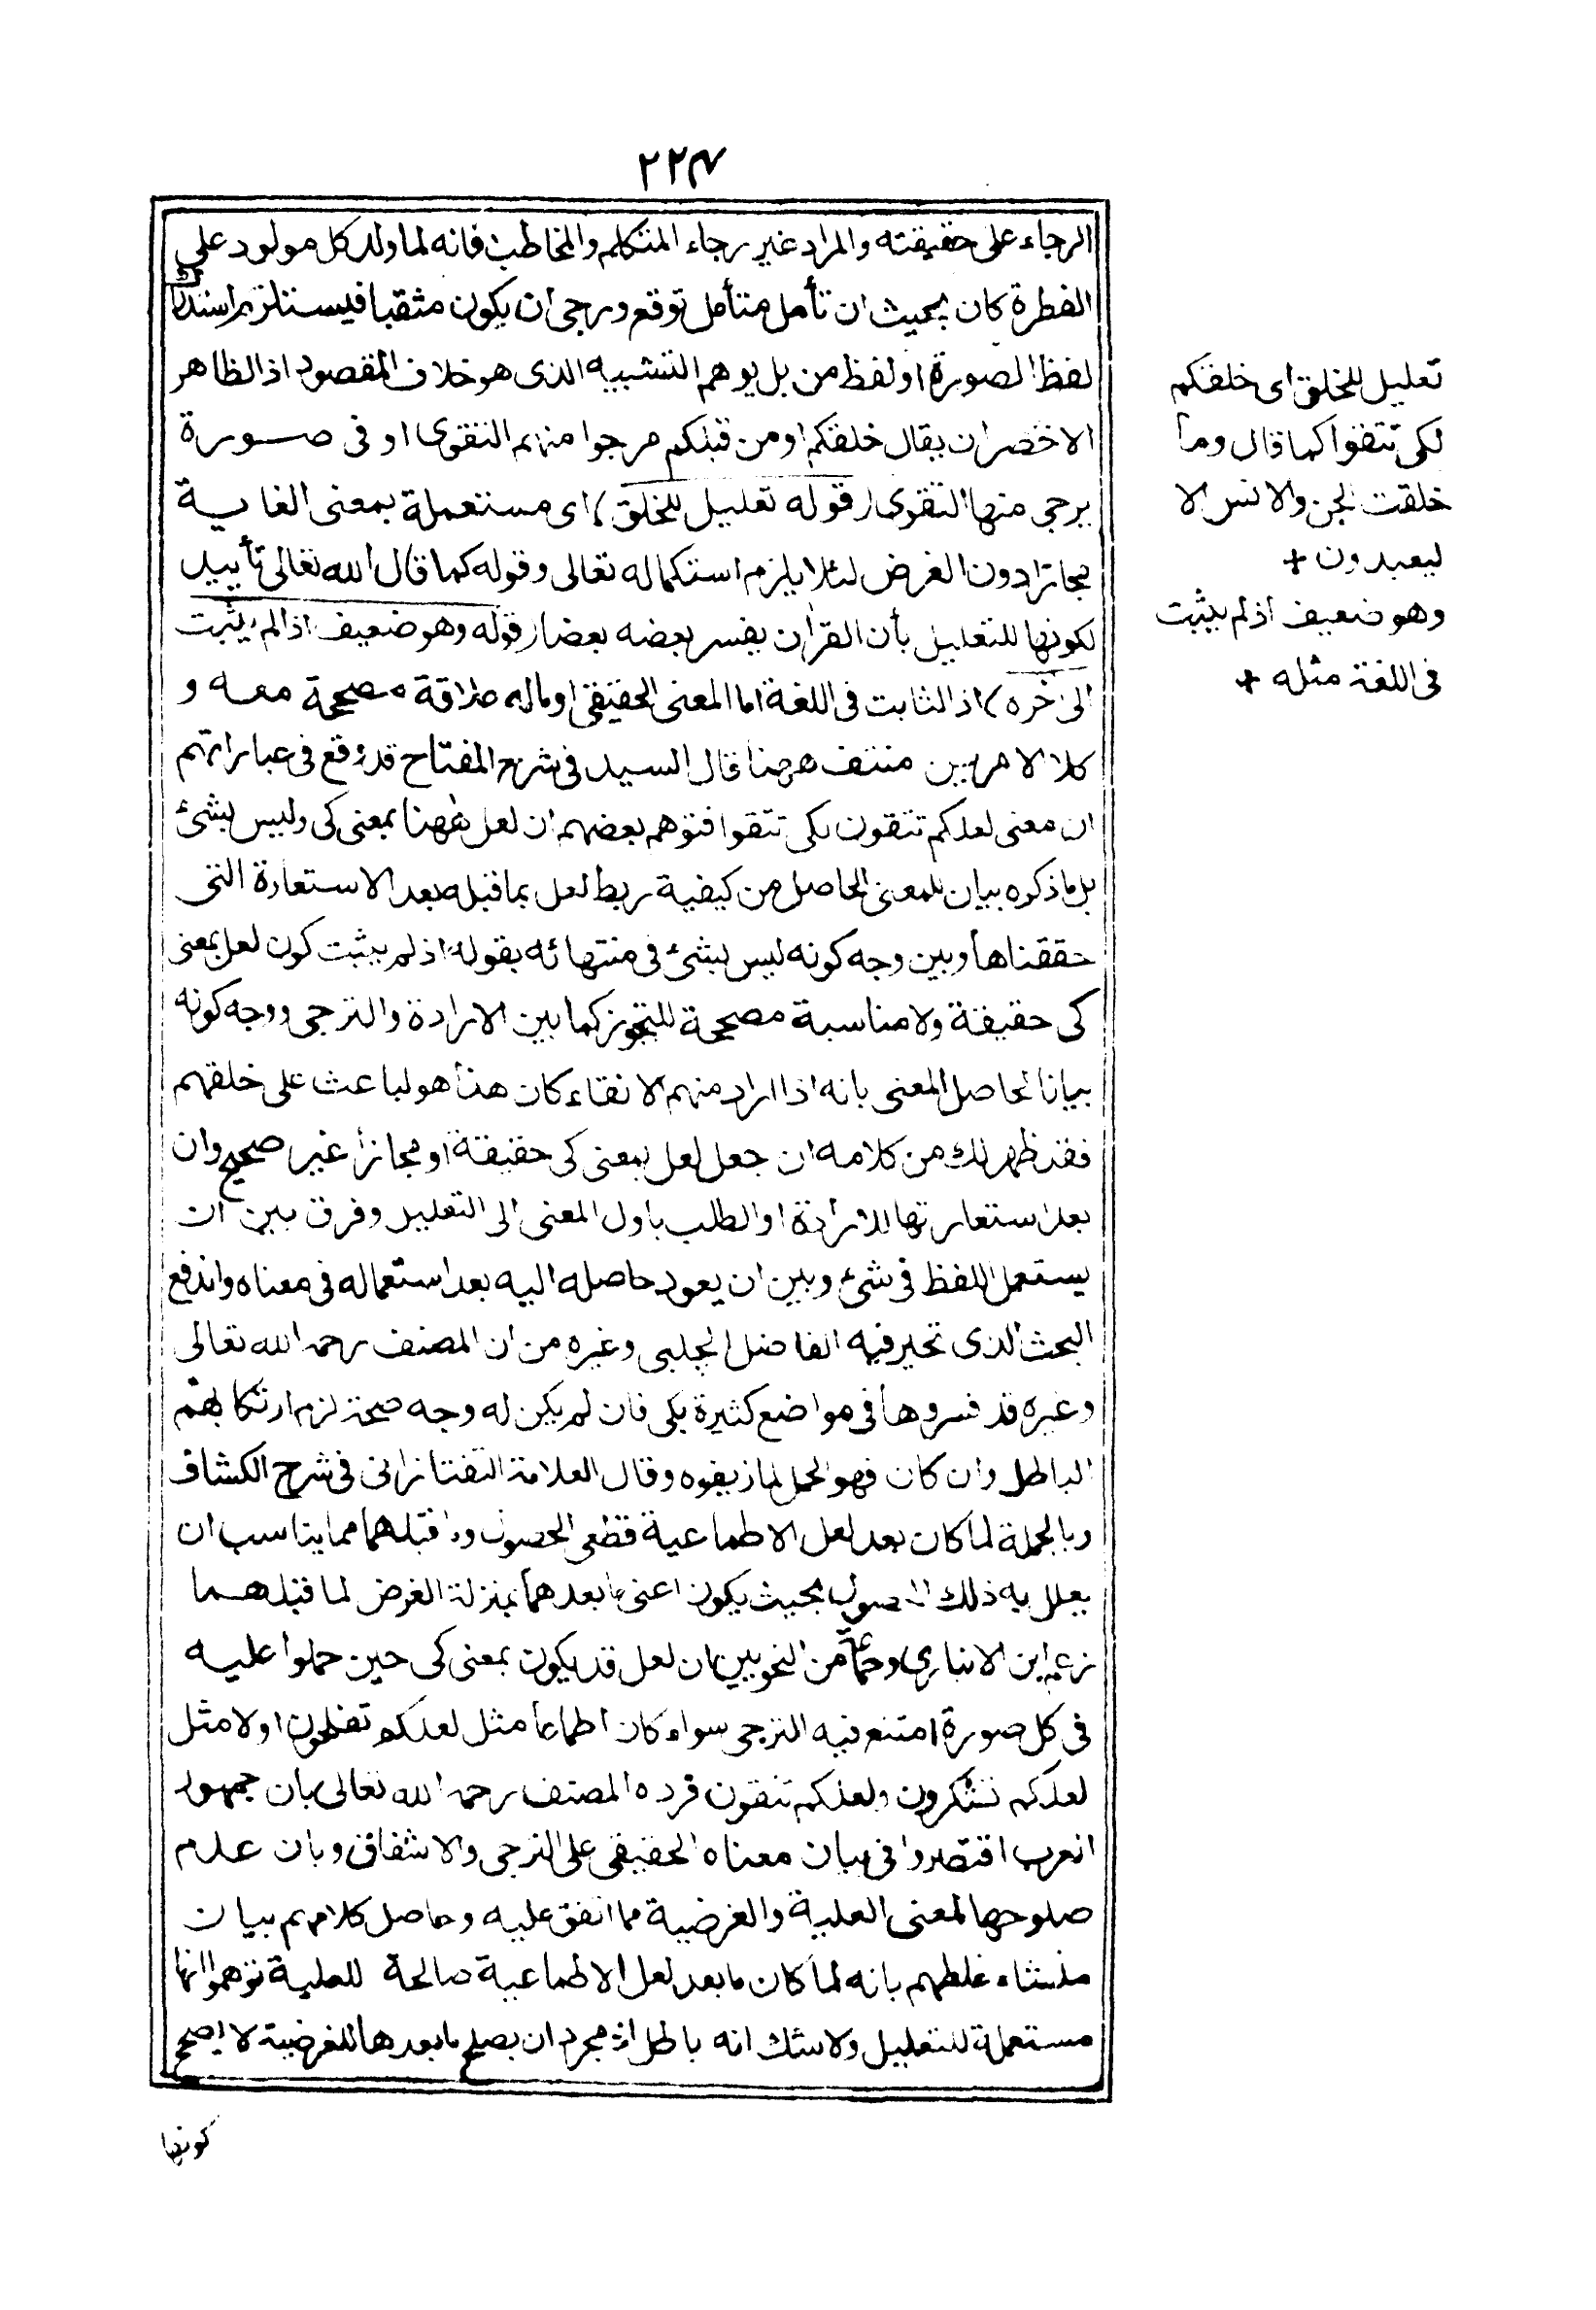 ٢٢٤
الرجاء على حقيقته والمراد غير رجاء المتكلم والمخاطب فانه لما ولد كل مولود على
الفطرة كان بحيث ان تأمل متأمل توقع ورجى ان يكون متقيا فيستلزم استدراك
لفظ الصورة او لفظ من بل يوهم التشبيه الذى هو خلاف المقصود اذ الظاهر
الاخضر ان يقال خلقكم او من قبلكم مرجوا منهم التقوى او فى صورة
يرجى منها التقوى (قوله تعليل للخلق) اى مستعملة بمعنى الغاية
مجازا دون الغرض لئلا يلزم استكماله تعالى وقوله كما قال الله تعالى تأييد
لكونها للتعليل بأن القرآن يفسر بعضه بعضا (قوله وهو ضعيف اذ لم يثبت
الى آخره) اذ الثابت فى اللغة اما المعنى الحقيقى او ماله علاقة مصححة معه و
كلا الامرين منتف ههنا قال السيد فى شرح المفتاح قد وقع فى عباراتهم
ان معنى لعلكم تتقون لكى تتقوا فتوهم بعضهم ان لعل ههنا بمعنى كى وليس بشئ
بل ما ذكروه بيان للمعنى الحاصل من كيفية ربط لعل بما قبله بعد الاستعارة التى
حققناها وبين وجه كونه ليس بشئ فى منتهائه بقوله اذ لم يثبت كون لعل بمعنى
كى حقيقة ولا مناسبة مصححة للتجوز كما بين الارادة والترجى ووجه كونه
بيانا لحاصل المعنى بانه اذا اراد منهم الاتقاء كان هذا هو الباعث على خلقهم
فقد ظهر لك من كلامه ان جعل لعل بمعنى كى حقيقة او مجازا غير صحيح وان
بعد استعارتها للارادة او الطلب يأول المعنى الى التعليل وفرق بين ان
يستعمل اللفظ فى شئ وبين ان يعود حاصله اليه بعد استعماله فى معناه واندفع
البحث الذى تحير فيه الفاضل الچلبى وغيره من ان المصنف رحمه الله تعالى
وغيره قد فسروها فى مواضع كثيرة بكى فان لم يكن له وجه صحة لزم ارتكابهم
الباطل وان كان فهو المحمل لما زيفوه وقال العلامة التفتازانى فى شرح الكشاف
وبالجملة لما كان بعد لعل الاطماعية قطعى الحصول وما قبلها مما يناسب ان
يعلل به ذلك الحصول بحيث يكون اعنى ما بعدها بمنزلة الغرض لما قبلها
زعم ابن الانبارى وجماعة من النحويين ان لعل قد يكون بمعنى كى حين حملوا عليه
فى كل صورة امتنع فيه الترجى سواء كان اطماعا مثل لعلكم تفلحون اولا مثل
لعلكم تشكرون ولعلكم تتقون فرده المصنف رحمه الله تعالى بان جمهور
العرب اقتصروا فى بيان معناه الحقيقى على الترجى والاشفاق وبان عدم
صلوحها لمعنى العلية والغرضية مما اتفق عليه وحاصل كلامهم بيان
منشاء غلطهم بانه لما كان ما بعد لعل الاطماعية صالحة للعلية توهموا انها
مستعملة للتعليل ولا شك انه باطل اذ مجرد ان يصلح ما بعدها للغرضية لا يصحح
كونها
تعليل للخلق اى خلقكم
لكى تتقوا كما قال وما
خلقت الجن والانس الا
ليعبدون +
وهو ضعيف اذ لم يثبت
فى اللغة مثله +